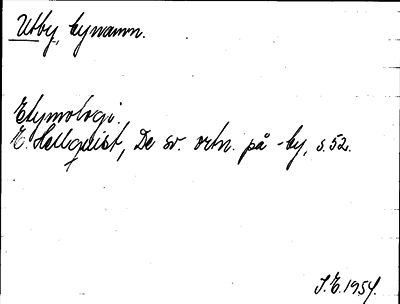 Utby, bynamn.
Etymologi.
E. Hellquist, De sv. ortn. på -by, s. 52.
J.E. 1954.